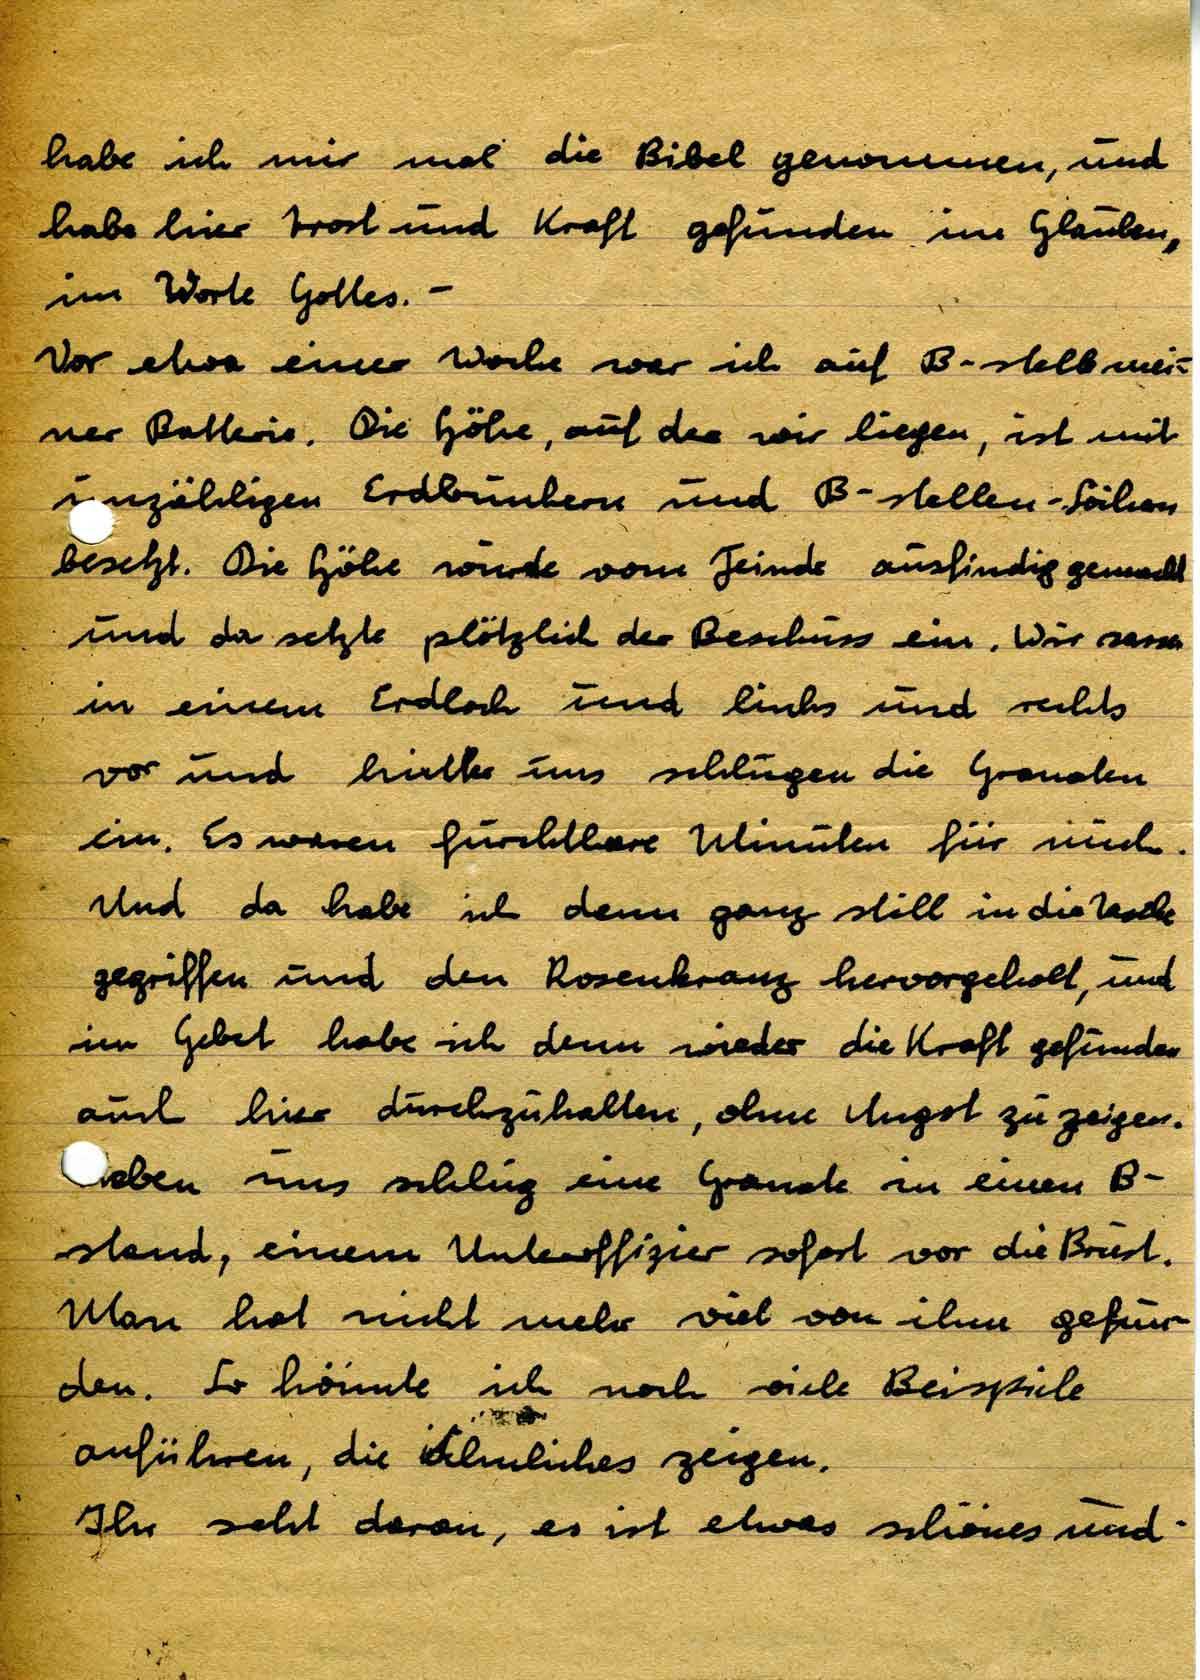 habe ich mir mal die Bibel genommen, und
habe hier Trost und Kraft gefunden im Glauben,
im Worte Gottes. –
Vor etwa einer Woche war ich auf B-stelle mei-
ner Batterie. Die Höhe, auf der wir liegen, ist mit
unzähligen Erdbunkern und B-stellen-
besetzt. Die Höhe wurde vom Feinde ausfindig gemacht
und da setzte plötzlich der Beschuss ein. Wir sassen
in einem Erdloch und links und rechts
vor und hinter uns schlugen die Granaten
ein. Es waren furchtbare Minuten für mich.
Und da habe ich denn ganz still in die Tasche
gegriffen und den Rosenkranz hervorgeholt, und
im Gebet habe ich denn wieder die Kraft gefunden
auch hier durchzuhalten, ohne Angst zu zeigen.
Neben uns schlug eine Granate in einen B-
stand, einem Unteroffizier sofort vor die Brust.
Man hat nicht mehr viel von ihm gefun-
den. So könnte ich noch viele Beispiele
anführen, die Ähnliches zeigen.
Ihr seht daran, es ist etwas schönes und